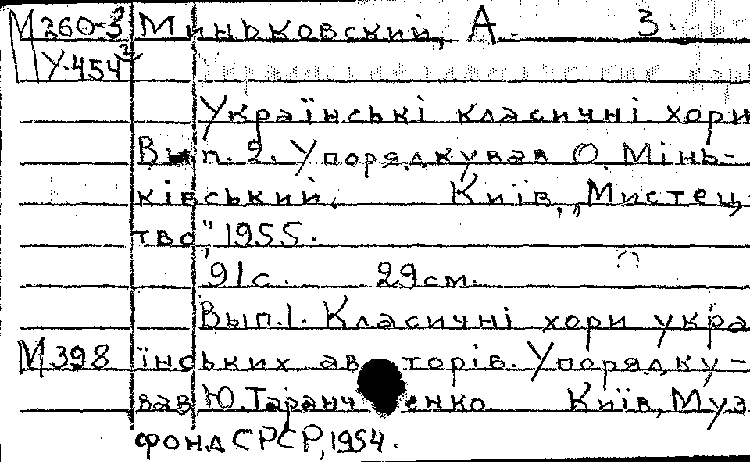 М260-3² Миньковский, А. З.
У-454²
Українські класичні хори
Вып. 2. Упорядкував О. Мінь-
ківський. Київ, „Мистец
тво" 1955.
91 с. 29 см.
Вып. 1. Класичні хори укра
М398 їнських авторів. Упорядку-
вав Ю. Таранченко Київ, Муз
фонд СРСР, 1954.